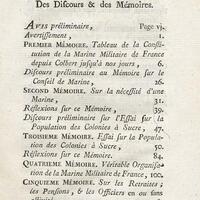 Des Discours & des Mémoires.
Avis préliminaire, Page vj.
Avertissement, 1.
Premier Mémoire. Tableau de la Consti-
tution de la Marine Militaire de France
depuis Colbert jusqu'à nos jours, 6.
Discours préliminaire au Mémoire sur le
Conseil de Marine, 26.
Second Mémoire. Sur la nécessité d'une
Marine, 31.
Réflexions sur ce Mémoire, 39.
Discours préliminaire sur l'Essai sur la
Population des Colonies à Sucre, 47.
Troisieme Mémoire. Essai sur la Popula-
tion des Colonies à Sucre, 50.
Réflexions sur ce Mémoire. 84.
Quatrieme Mémoire. Véritable Organisa-
tion de la Marine Militaire de France, 100.
Cinquieme Mémoire. Sur les Retraites;
les Pensions, & les Officiers en ou sans